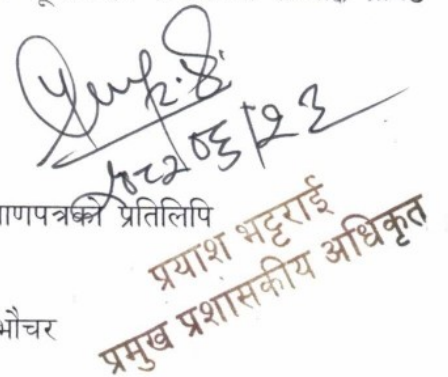 २०८२।०६।२३
माणपत्रको प्रतिलिपि
प्रयाश भट्टराई
प्रमुख प्रशासकीय अधिकृत
भौचर